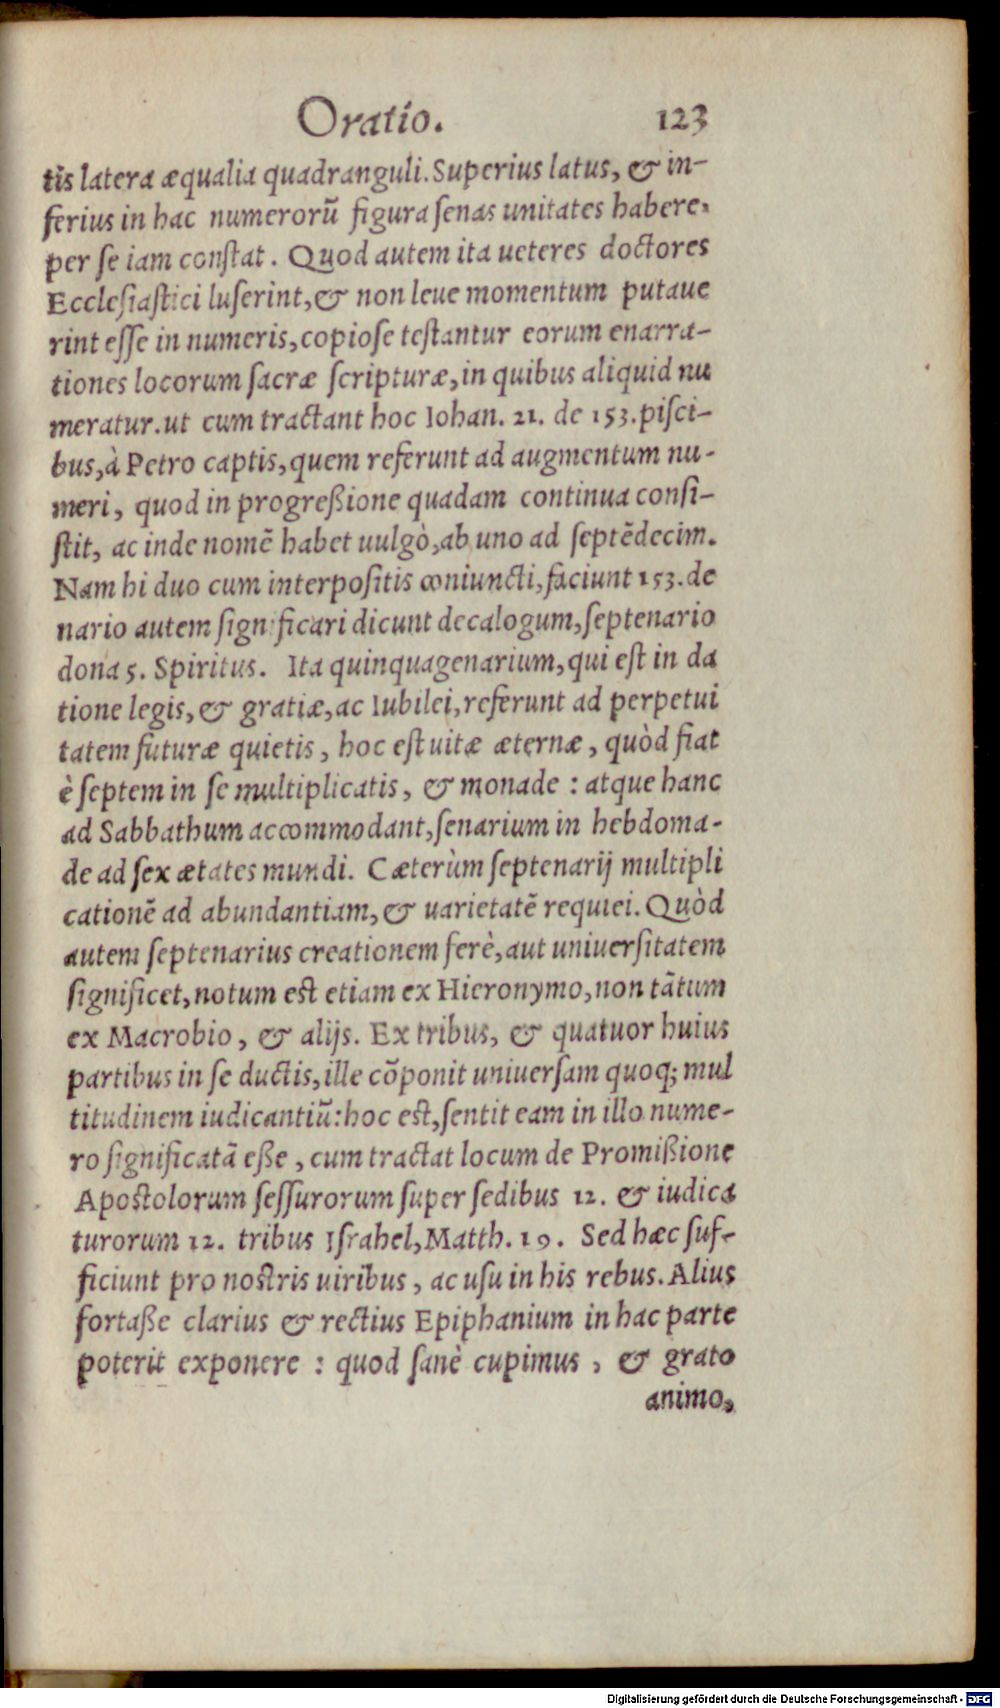 Oratio. 123
tis latera æqualia quadranguli. Superius latus, & in-
ferius in hac numerorū figura senas unitates habere,
per se iam constat. Quod autem ita ueteres doctores
Ecclesiastici luserint, & non leue momentum putaue
rint esse in numeris, copiose testantur eorum enarra-
tiones locorum sacræ scripturæ, in quibus aliquid nu
meratur. ut cum tractant hoc Iohan. 21. de 153. pisci-
bus, à Petro captis, quem referunt ad augmentum nu-
meri, quod in progreßione quadam continua consi-
stit, ac inde nomē habet uulgò, ab uno ad septēdecim.
Nam hi duo cum interpositis coniuncti, faciunt 153. de
nario autem significari dicunt decalogum, septenario
dona s. Spiritus. Ita quinquagenarium, qui est in da
tione legis, & gratiæ, ac Iubilei, referunt ad perpetui
tatem futuræ quietis, hoc est uitæ æternæ, quòd fiat
è septem in se multiplicatis, & monade : atque hanc
ad Sabbathum accommodant, senarium in hebdoma-
de ad sex ætates mundi. Cæterùm septenarij multipli
cationē ad abundantiam, & uarietatē requiei. Quòd
autem septenarius creationem ferè, aut uniuersitatem
significet, notum est etiam ex Hieronymo, non tātum
ex Macrobio, & alijs. Ex tribus, & quatuor huius
partibus in se ductis, ille cōponit uniuersam quoq; mul
titudinem iudicantiū: hoc est, sentit eam in illo nume-
ro significatā eße, cum tractat locum de Promißione
Apostolorum sessurorum super sedibus 12. & iudica
turorum 12. tribus Israhel, Matth. 19. Sed hæc suf-
ficiunt pro nostris uiribus, ac usu in his rebus. Alius
fortaße clarius & rectius Epiphanium in hac parte
poterit exponere : quod sanè cupimus, & grato
animo,
Digitalisierung gefördert durch die Deutsche Forschungsgemeinschaft - DFG